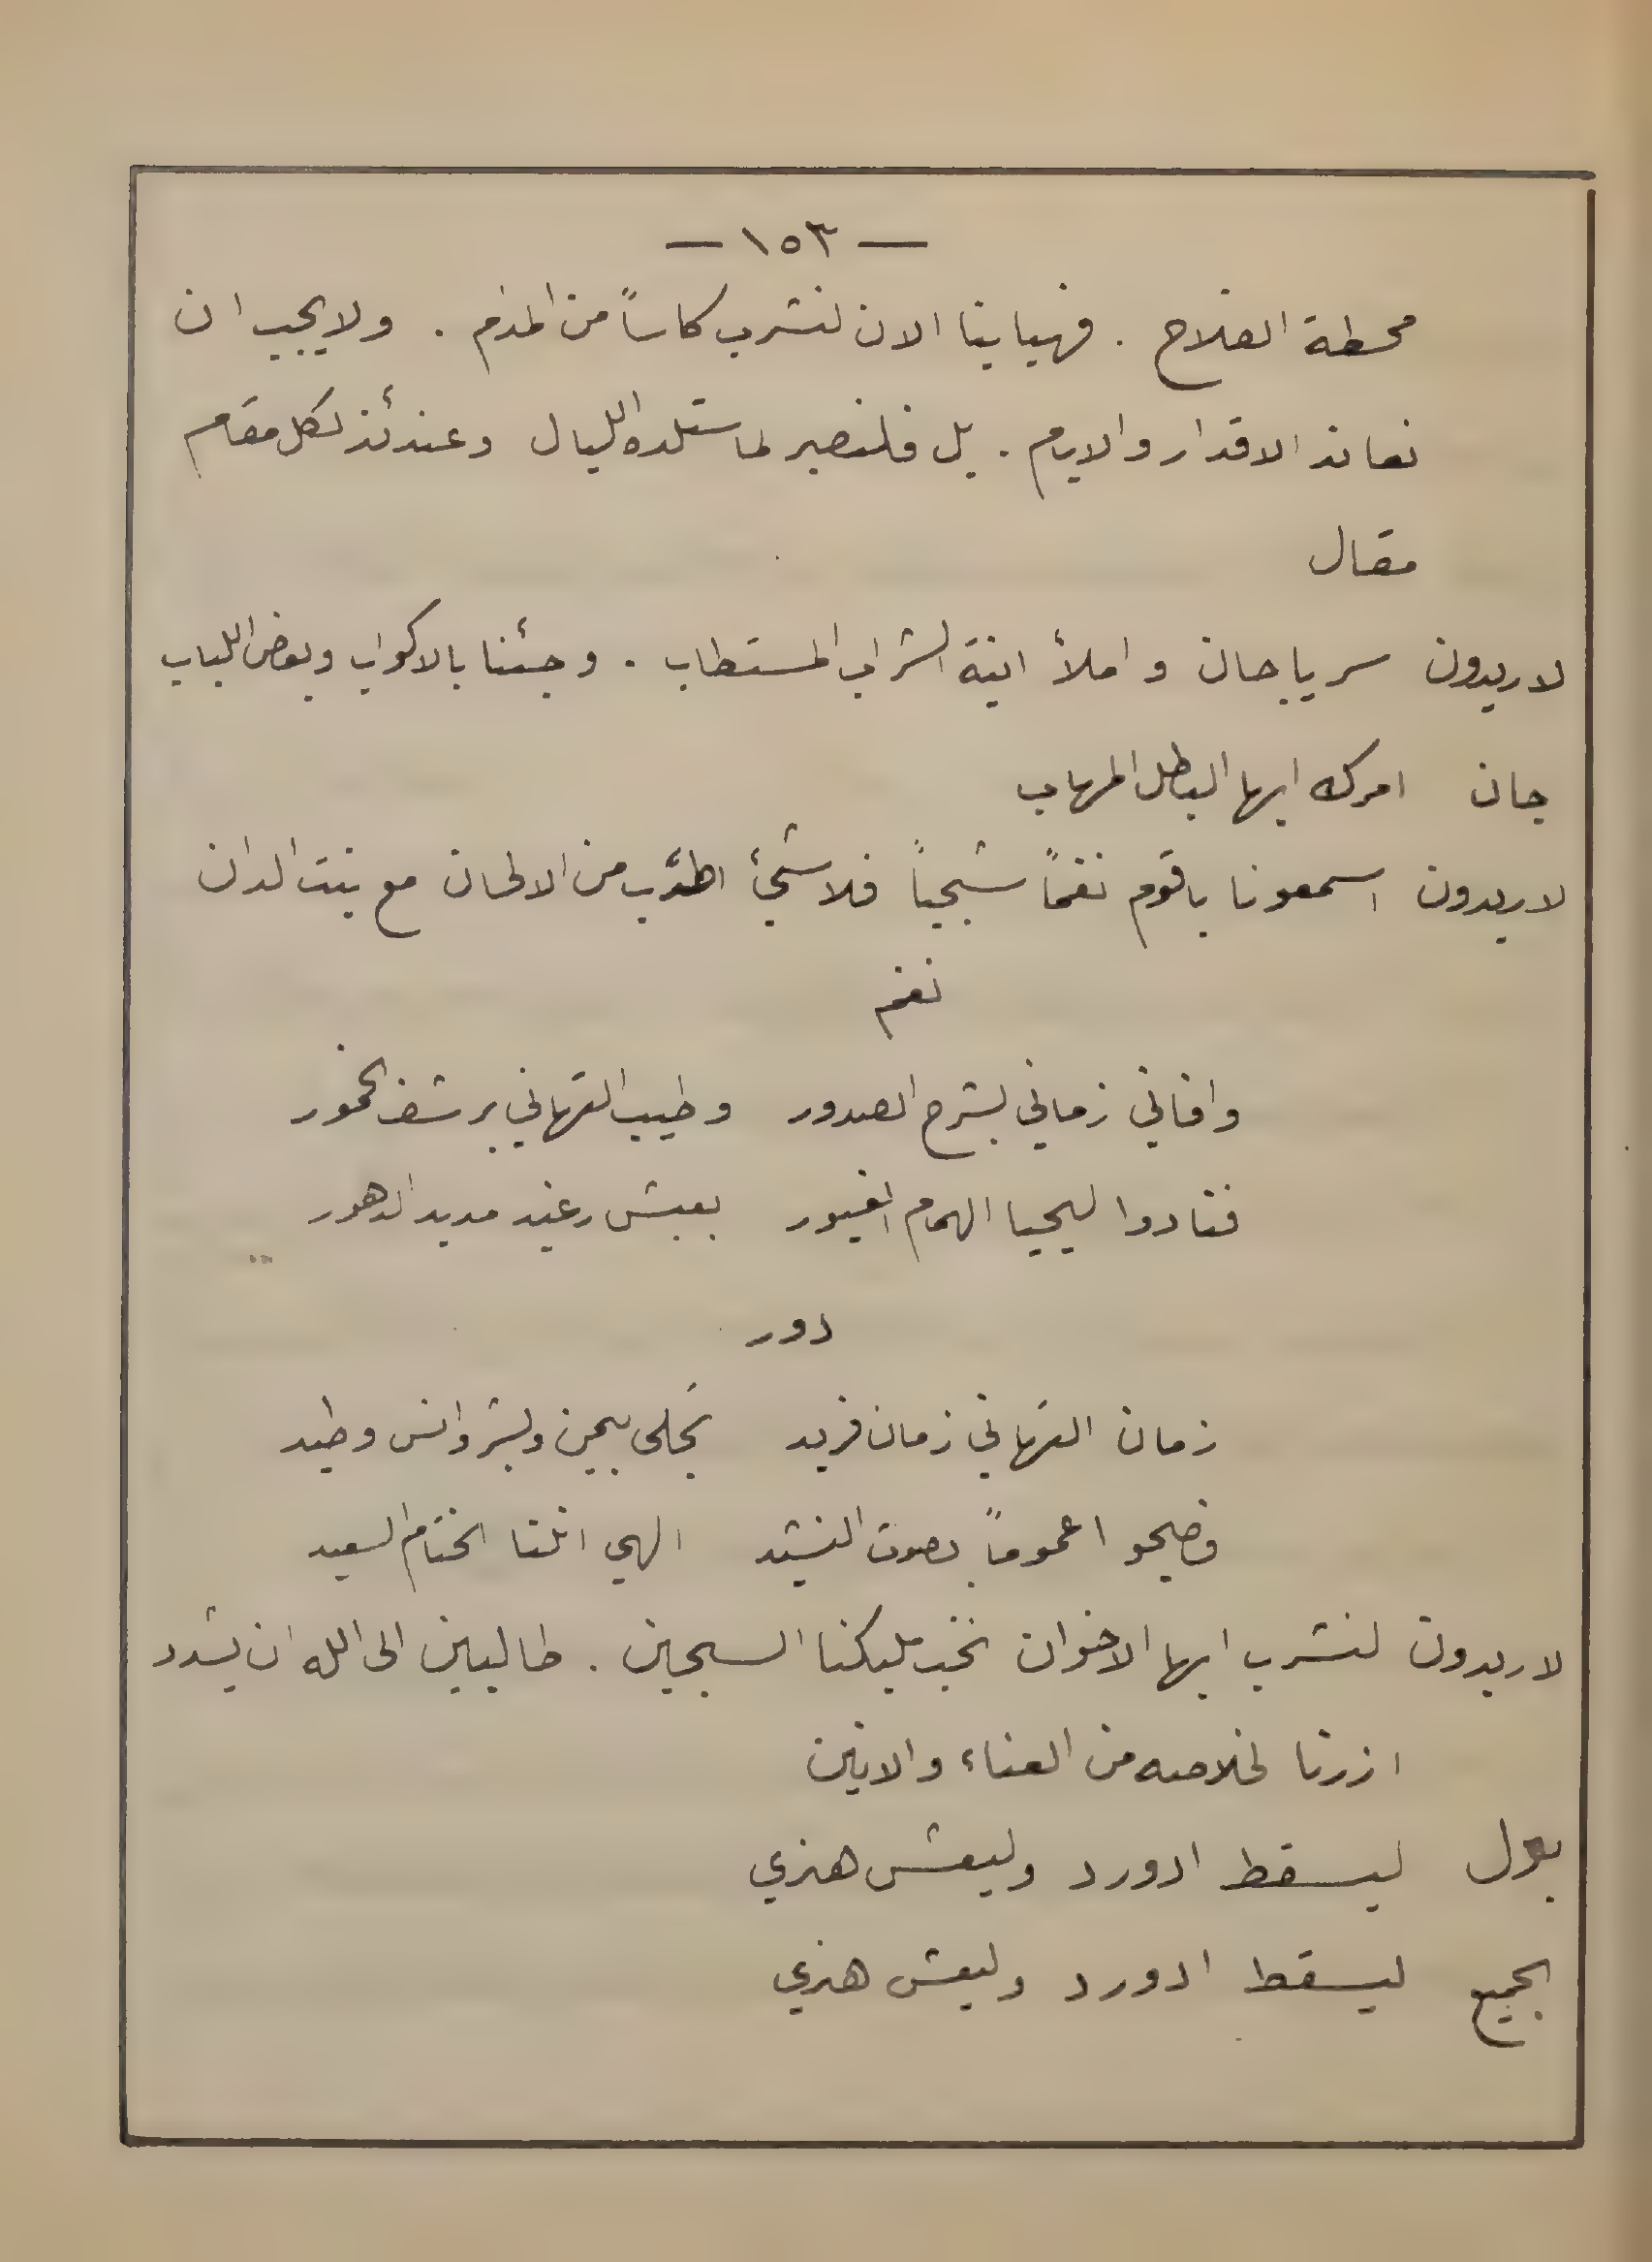 — ١٥٣ —
محطة الفلاح . فهيا بنا الان لنشرب كاساً من المدام . ولا يجب ان
نعاند الاقدار والايام . بل فلنصبر لما ستلده الليال وعندئذ لكل مقام
مقال
لاريدون سر يا جان واملأ انية الشراب المستطاب . وجئنا بالاكواب وبعض اللباب
جان امرك ايها البطل المهاب
لاريدون اسمعونا ياقوم نغماً شجياً فلا شيئ اطرب من الالحان مع بنت الدان
نغم
وافاني زماني بشرح الصدور وطيب التهاني برشف الخمور
فنادوا ليحيا الهمام الغيور بعيش رغيد مديد الدهور
دور
زمان التهاني زمان فريد تجلى بيمن وبشر وانس وطيد
وصيحوا عموماً بصوت النشيد الهي انلنا الختام السعيد
لاريدون لنشرب ايها الاخوان نخب مليكنا السجين . طالبين الى الله ان يشدد
ازرنا لخلاصه من العناء والانين
بول ليسقط ادورد وليعش هنري
الجميع ليسقط ادورد وليعش هنري